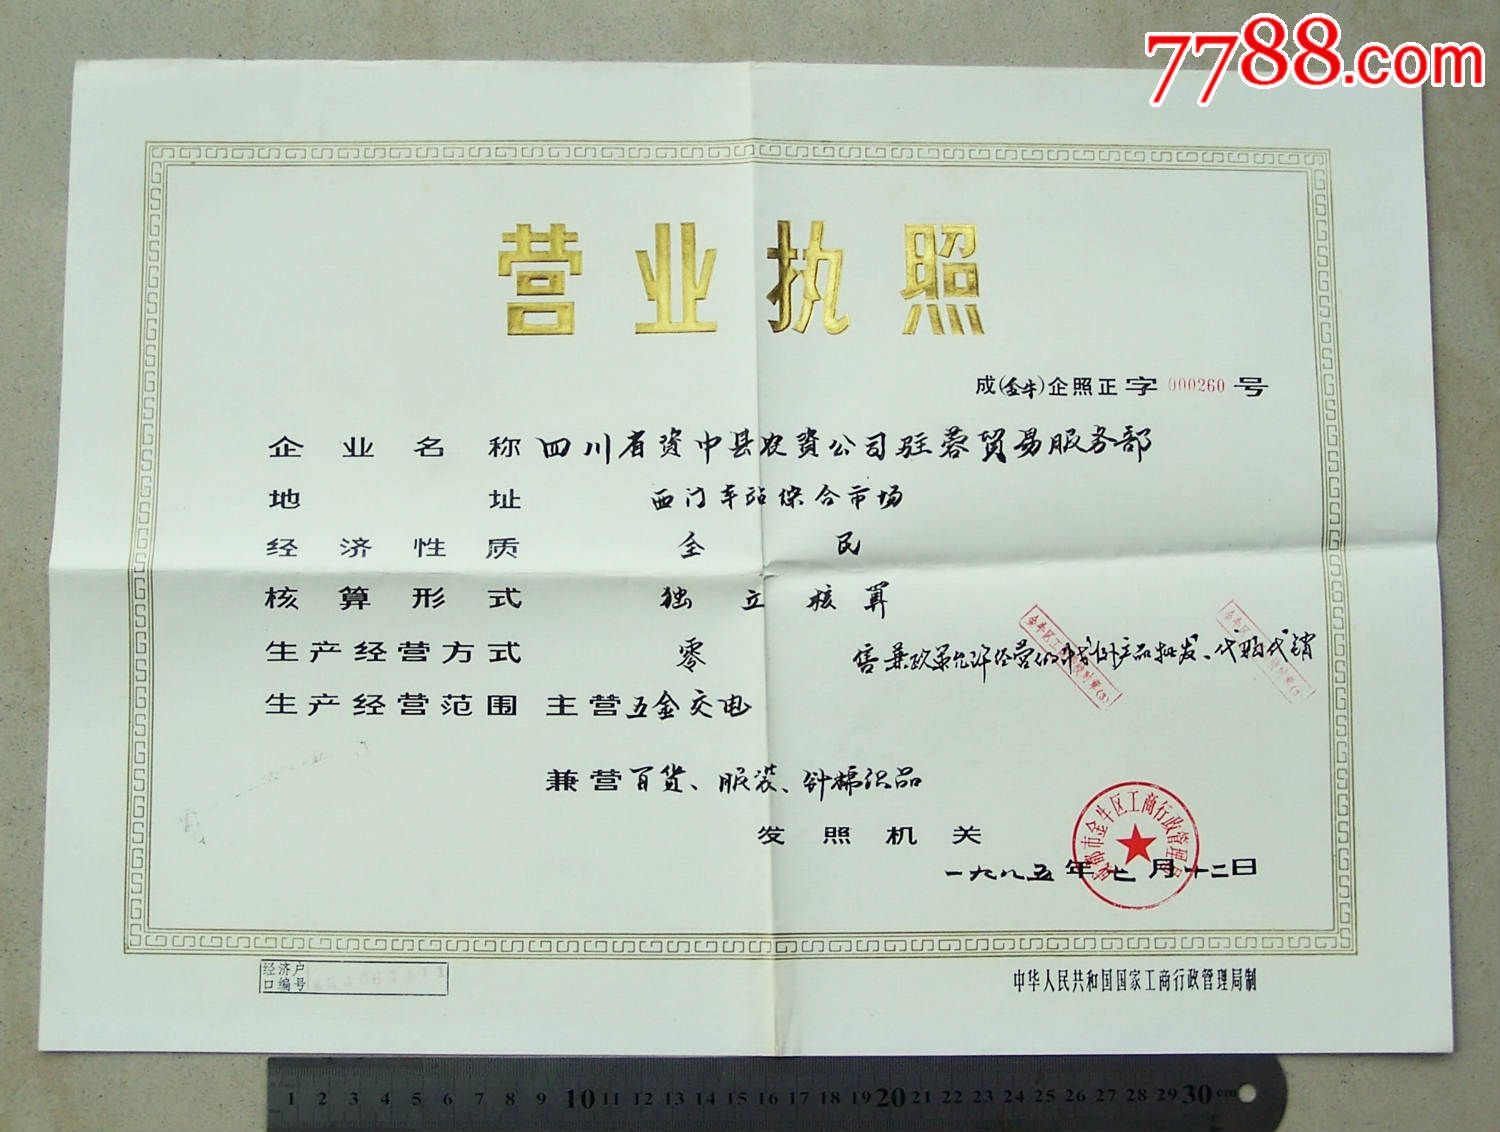 7788.com
营业执照
成(金牛)企照正字 000260 号
企业名称 四川省资中县农资公司驻蓉贸易服务部
地址 西门车站综合市场
经济性质 全民
核算形式 独立核算
生产经营方式 零售兼政策允许经营的 产品批发、代购代销
生产经营范围 主营五金交电
兼营百货、服装、针棉织品
发照机关
成都市金牛区工商行政管理局
一九八五年七月十二日
经济户
口编号
中华人民共和国国家工商行政管理局制
1 2 3 4 5 6 7 8 9 10 11 12 13 14 15 16 17 18 19 20 21 22 23 24 25 26 27 28 29 30 cm